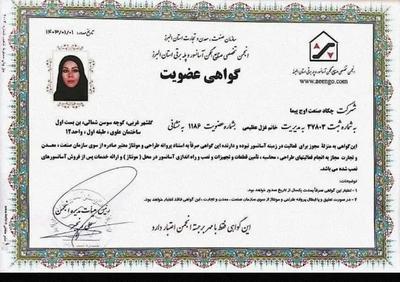 تاریخ صدور: ۱۴۰۳/۰۱/۰۱
سازمان صنعت، معدن و تجارت استان البرز
انجمن تخصصی صنایع همگن آسانسور و پله برقی استان البرز
گواهی عضویت
انجمن تخصصی صنایع همگن آسانسور و پله برقی استان البرز
www.aeengo.com
شرکت چکاد صنعت اوج پیما
به شماره ثبت ۳۷۸۰۲ به مدیریت خانم غزل عظیمی بشماره عضویت ۱۱۸۶ به نشانی گلشهر غربی، کوچه سوسن شمالی، بن بست اول
ساختمان علوی، طبقه اول، واحد ۱۲
این گواهی به منزله مجوز برای فعالیت در زمینه آسانسور نبوده و دارنده این گواهی صرفاً به استناد پروانه طراحی و مونتاژ معتبر صادره از سوی سازمان صنعت، معدن
و تجارت مجاز به انجام فعالیتهای طراحی، محاسبه، تأمین قطعات و تجهیزات و نصب و راه اندازی آسانسور در محل (مونتاژ) و ارائه خدمات پس از فروش آسانسورهای
نصب شده می باشد.
۱- اعتبار این گواهی صرفاً بمدت یکسال از تاریخ صدور خواهد بود.
۲- در صورت تعلیق و یا ابطال پروانه طراحی و مونتاژ از سوی سازمان صنعت، معدن و تجارت، این گواهی فاقد اعتبار خواهد بود.
رئیس هیات مدیره انجمن
این گواهی فقط با مهر برجسته انجمن اعتبار دارد